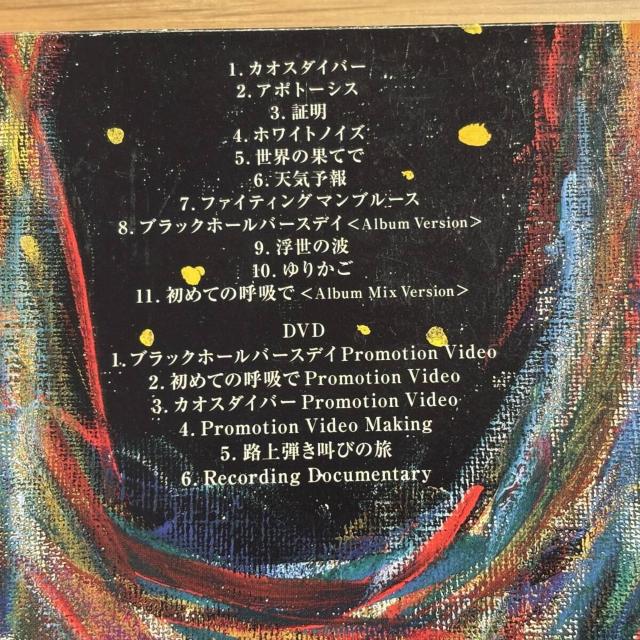 1. カオスダイバー
2. アポトーシス
3. 証明
4. ホワイトノイズ
5. 世界の果てで
6. 天気予報
7. ファイティングマンブルース
8. ブラックホールバースデイ<Album Version>
9. 浮世の波
10. ゆりかご
11. 初めての呼吸で <Album Mix Version>
DVD
1. ブラックホールバースデイ Promotion Video
2. 初めての呼吸で Promotion Video
3. カオスダイバー Promotion Video
4. Promotion Video Making
5. 路上弾き叫びの旅
6. Recording Documentary